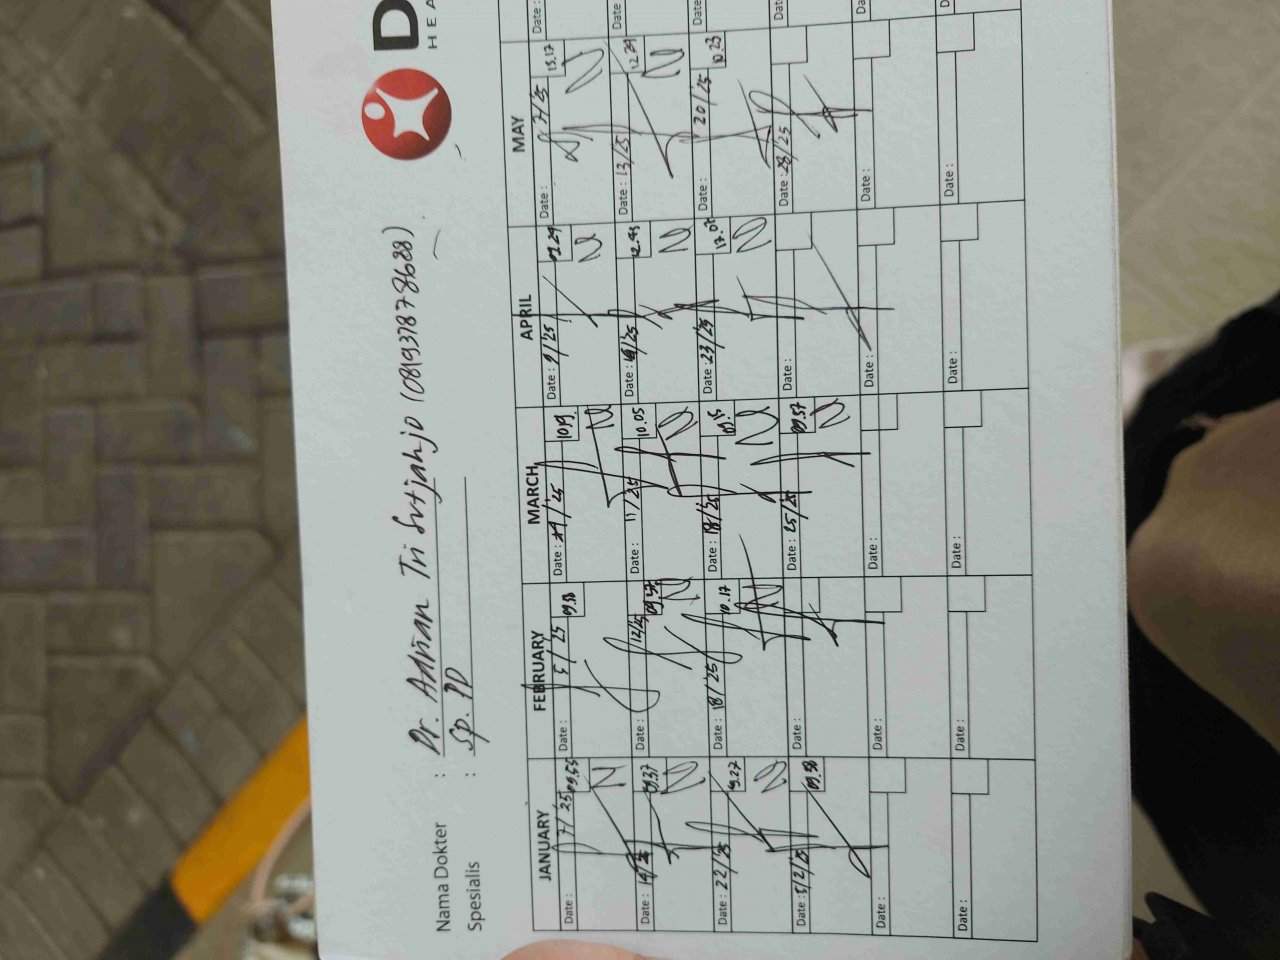 D
HEA
Nama Dokter : Dr. Adrian Tri Sutjahjo (081937878688)
Spesialis : Sp. PD
JANUARY FEBRUARY MARCH APRIL MAY
Date : 7/25 09.55 Date : 5/25 09.38 Date : 4/25 10.19 Date : 9/25 Date : 7/25 13.17 Date :
Date : 14/25 9.37 Date : 12/25 09.57 Date : 11/25 10.05 Date : /25 12.43 Date : 13/25 12.29 Date
Date : 22/25 9.27 Date : 18/25 10.17 Date : 18/25 09.15 Date : 23/25 Date : 20/25 10.23 Date
Date : 5/2/25 09.38 Date : Date : 25/25 09.37 Date : Date : 28/25 Dat
Date : Date : Date : Date : Date : Da
Date : Date : Date : Date : Date : D